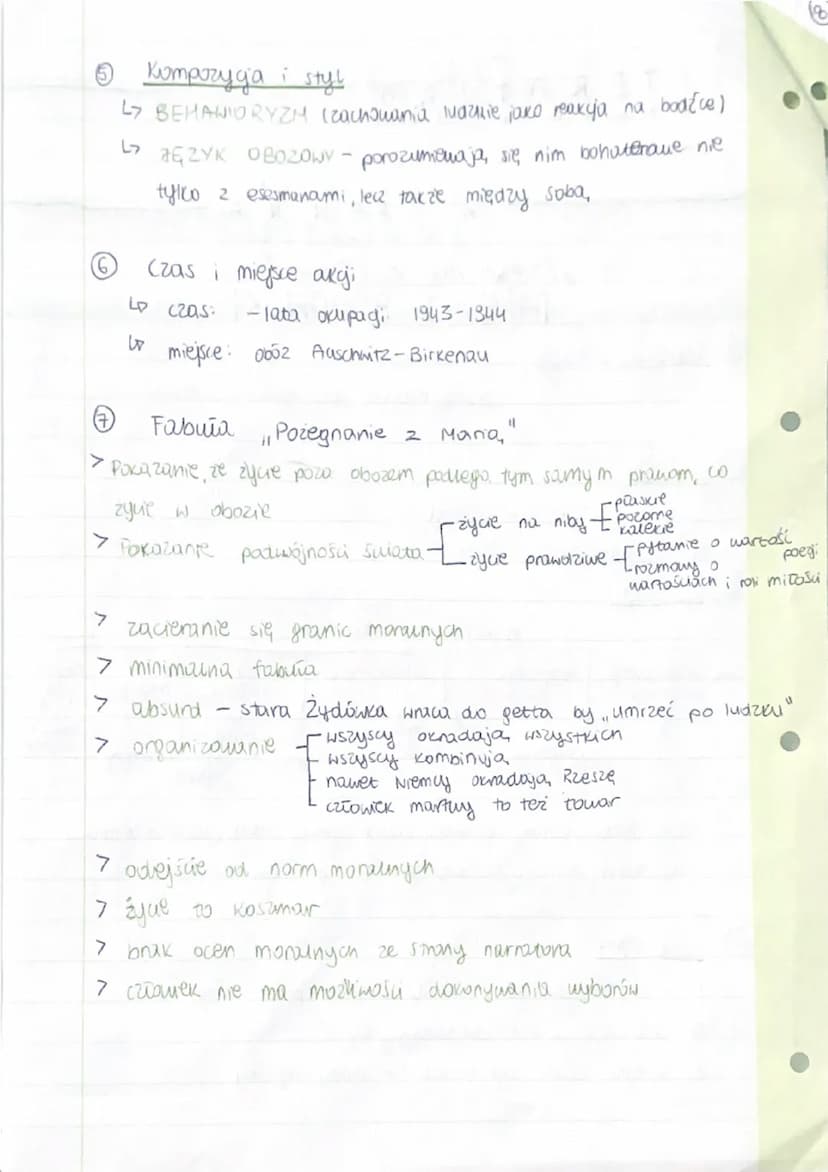 8
⑤ Kompozycja i styl
↳ BEHAWIORYZM (zachowania ludzkie jako reakcja na bodźce)
↳ JĘZYK OBOZOWY - porozumiewają się nim bohaterowie nie
tylko z esesmanami, lecz także między sobą
⑥ Czas i miejsce akcji
↳ czas: - lata okupacji 1943-1944
↳ miejsce: obóz Auschwitz-Birkenau
⑦ Fabuła „Pożegnanie z Marią"
> Pokazanie, że życie poza obozem podlega tym samym prawom, co
życie w obozie
> Pokazanie podwójności świata
życie na niby
płaskie
pozorne
kalekie
życie prawdziwe
pytanie o wartość poezji
rozmowy o
wartościach i roli miłości
> zacieranie się granic moralnych
> minimalna fabuła
> absurd - stara Żydówka wraca do getta by „umrzeć po ludzku"
> organizowanie
wszyscy okradają wszystkich
wszyscy kombinują
nawet Niemcy okradają Rzeszę
człowiek martwy to też towar
> odejście od norm moralnych
> życie to koszmar
> brak ocen moralnych ze strony narratora
> człowiek nie ma możliwości dokonywania wyborów